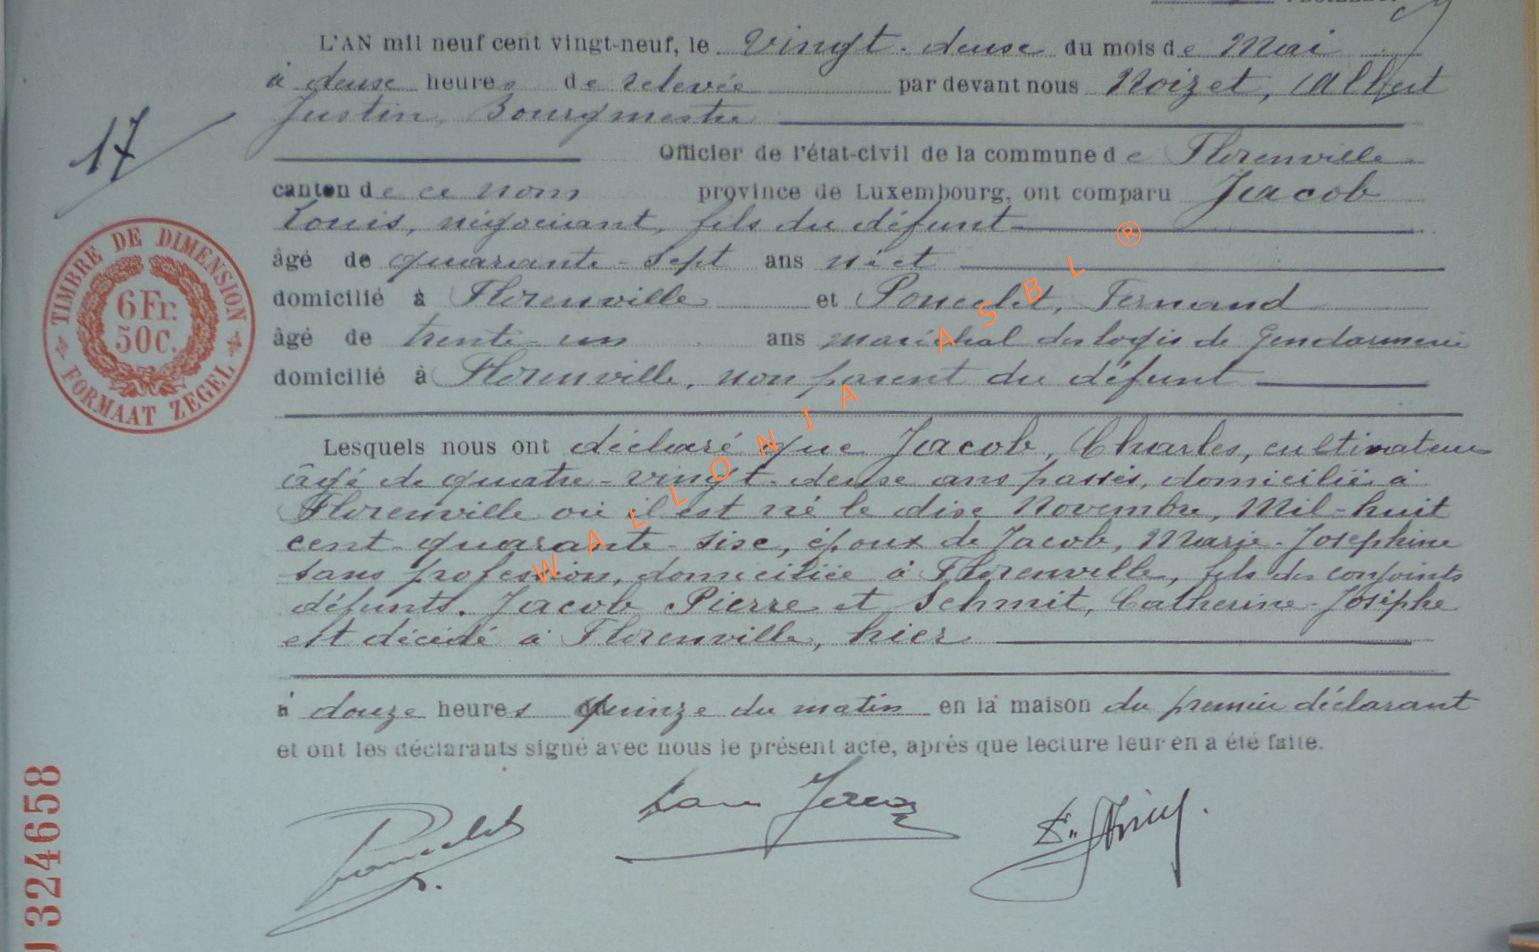 L'AN mil neuf cent vingt-neuf, le vingt-deuxe du mois de Mai
à deuxe heures de relevée par devant nous Noizet, Albert
Justin, Bourgmestre
17
Officier de l'état-civil de la commune de Florenville
canton de ce nom province de Luxembourg, ont comparu Jacob
Louis, négociant, fils du défunt
âgé de quarante-sept ans né et
domicilié à Florenville et Poncelet, Fernand
âgé de trente-un ans maréchal des logis de Gendarmerie
domicilié à Florenville, non parent du défunt
TIMBRE DE DIMENSION
6 Fr.
50 C.
FORMAAT ZEGEL
Lesquels nous ont déclaré que Jacob, Charles, cultivateur
âgé de quatre-vingt-deuxe ans passés, domicilié à
Florenville où il est né le dixe Novembre, Mil-huit
cent-quarante-sixe, époux de Jacob, Marie-Joséphine
sans profession, domiciliée à Florenville, fils des conjoints
défunts. Jacob Pierre et Schmit, Catherine-Josèphe
est décédé à Florenville, hier
à douze heures quinze du matin en la maison du premier déclarant
et ont les déclarants signé avec nous le présent acte, après que lecture leur en a été faite.
Poncelet
324658
WALLONIA ASBL ®